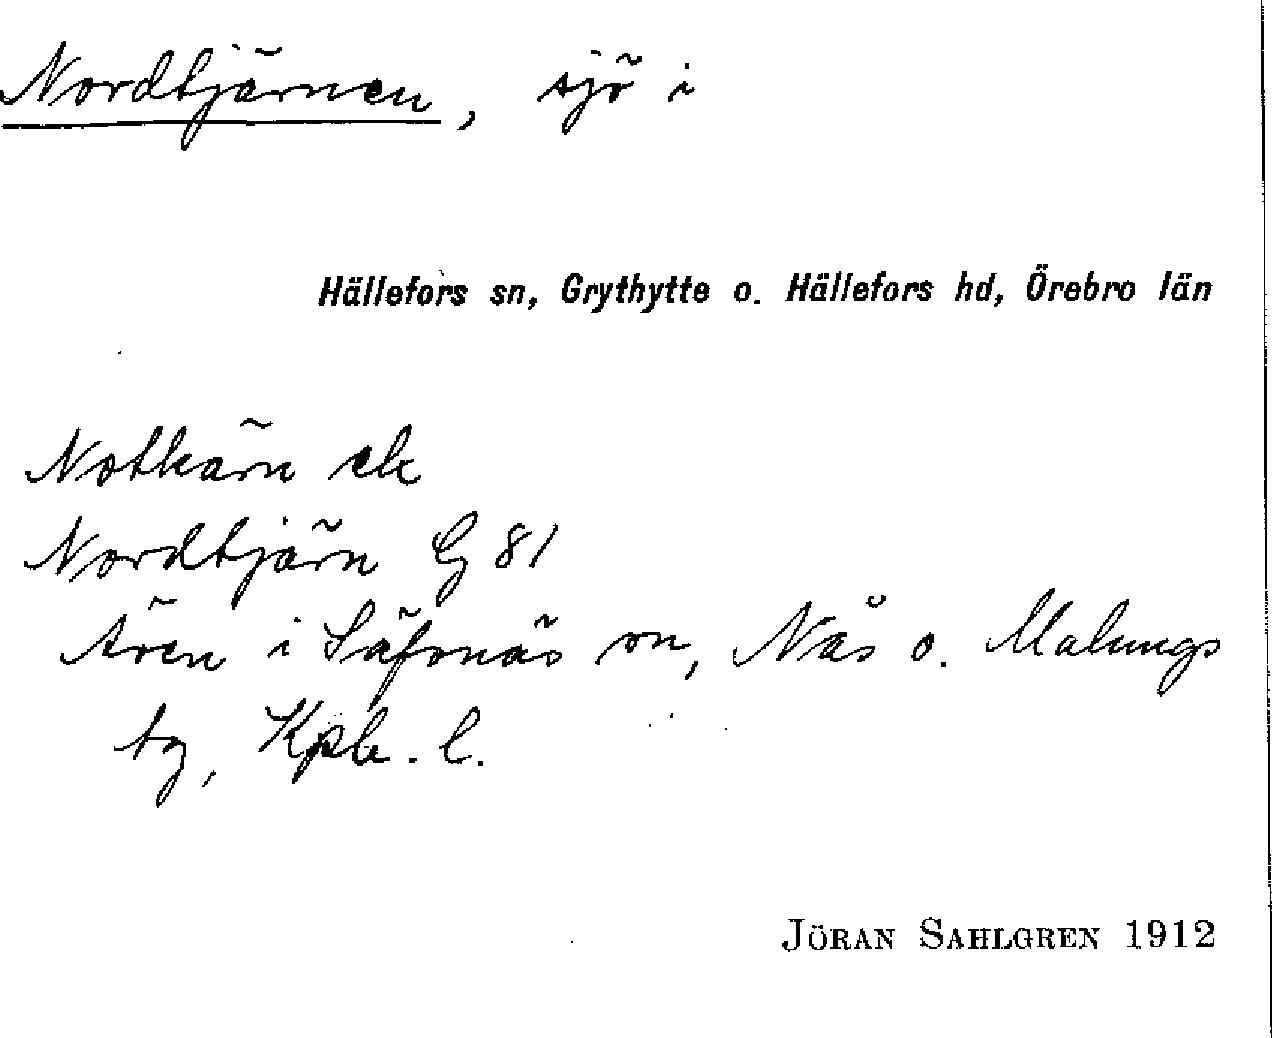 Nordtjärnen, sjö i
Hällefors sn, Grythytte o. Hällefors hd, Örebro län
Notkärn ek
Nordtjärn G 81
Även i Säfsnäs sn, Nås o. Malungs
tg, Kpb. l.
JÖRAN SAHLGREN 1912